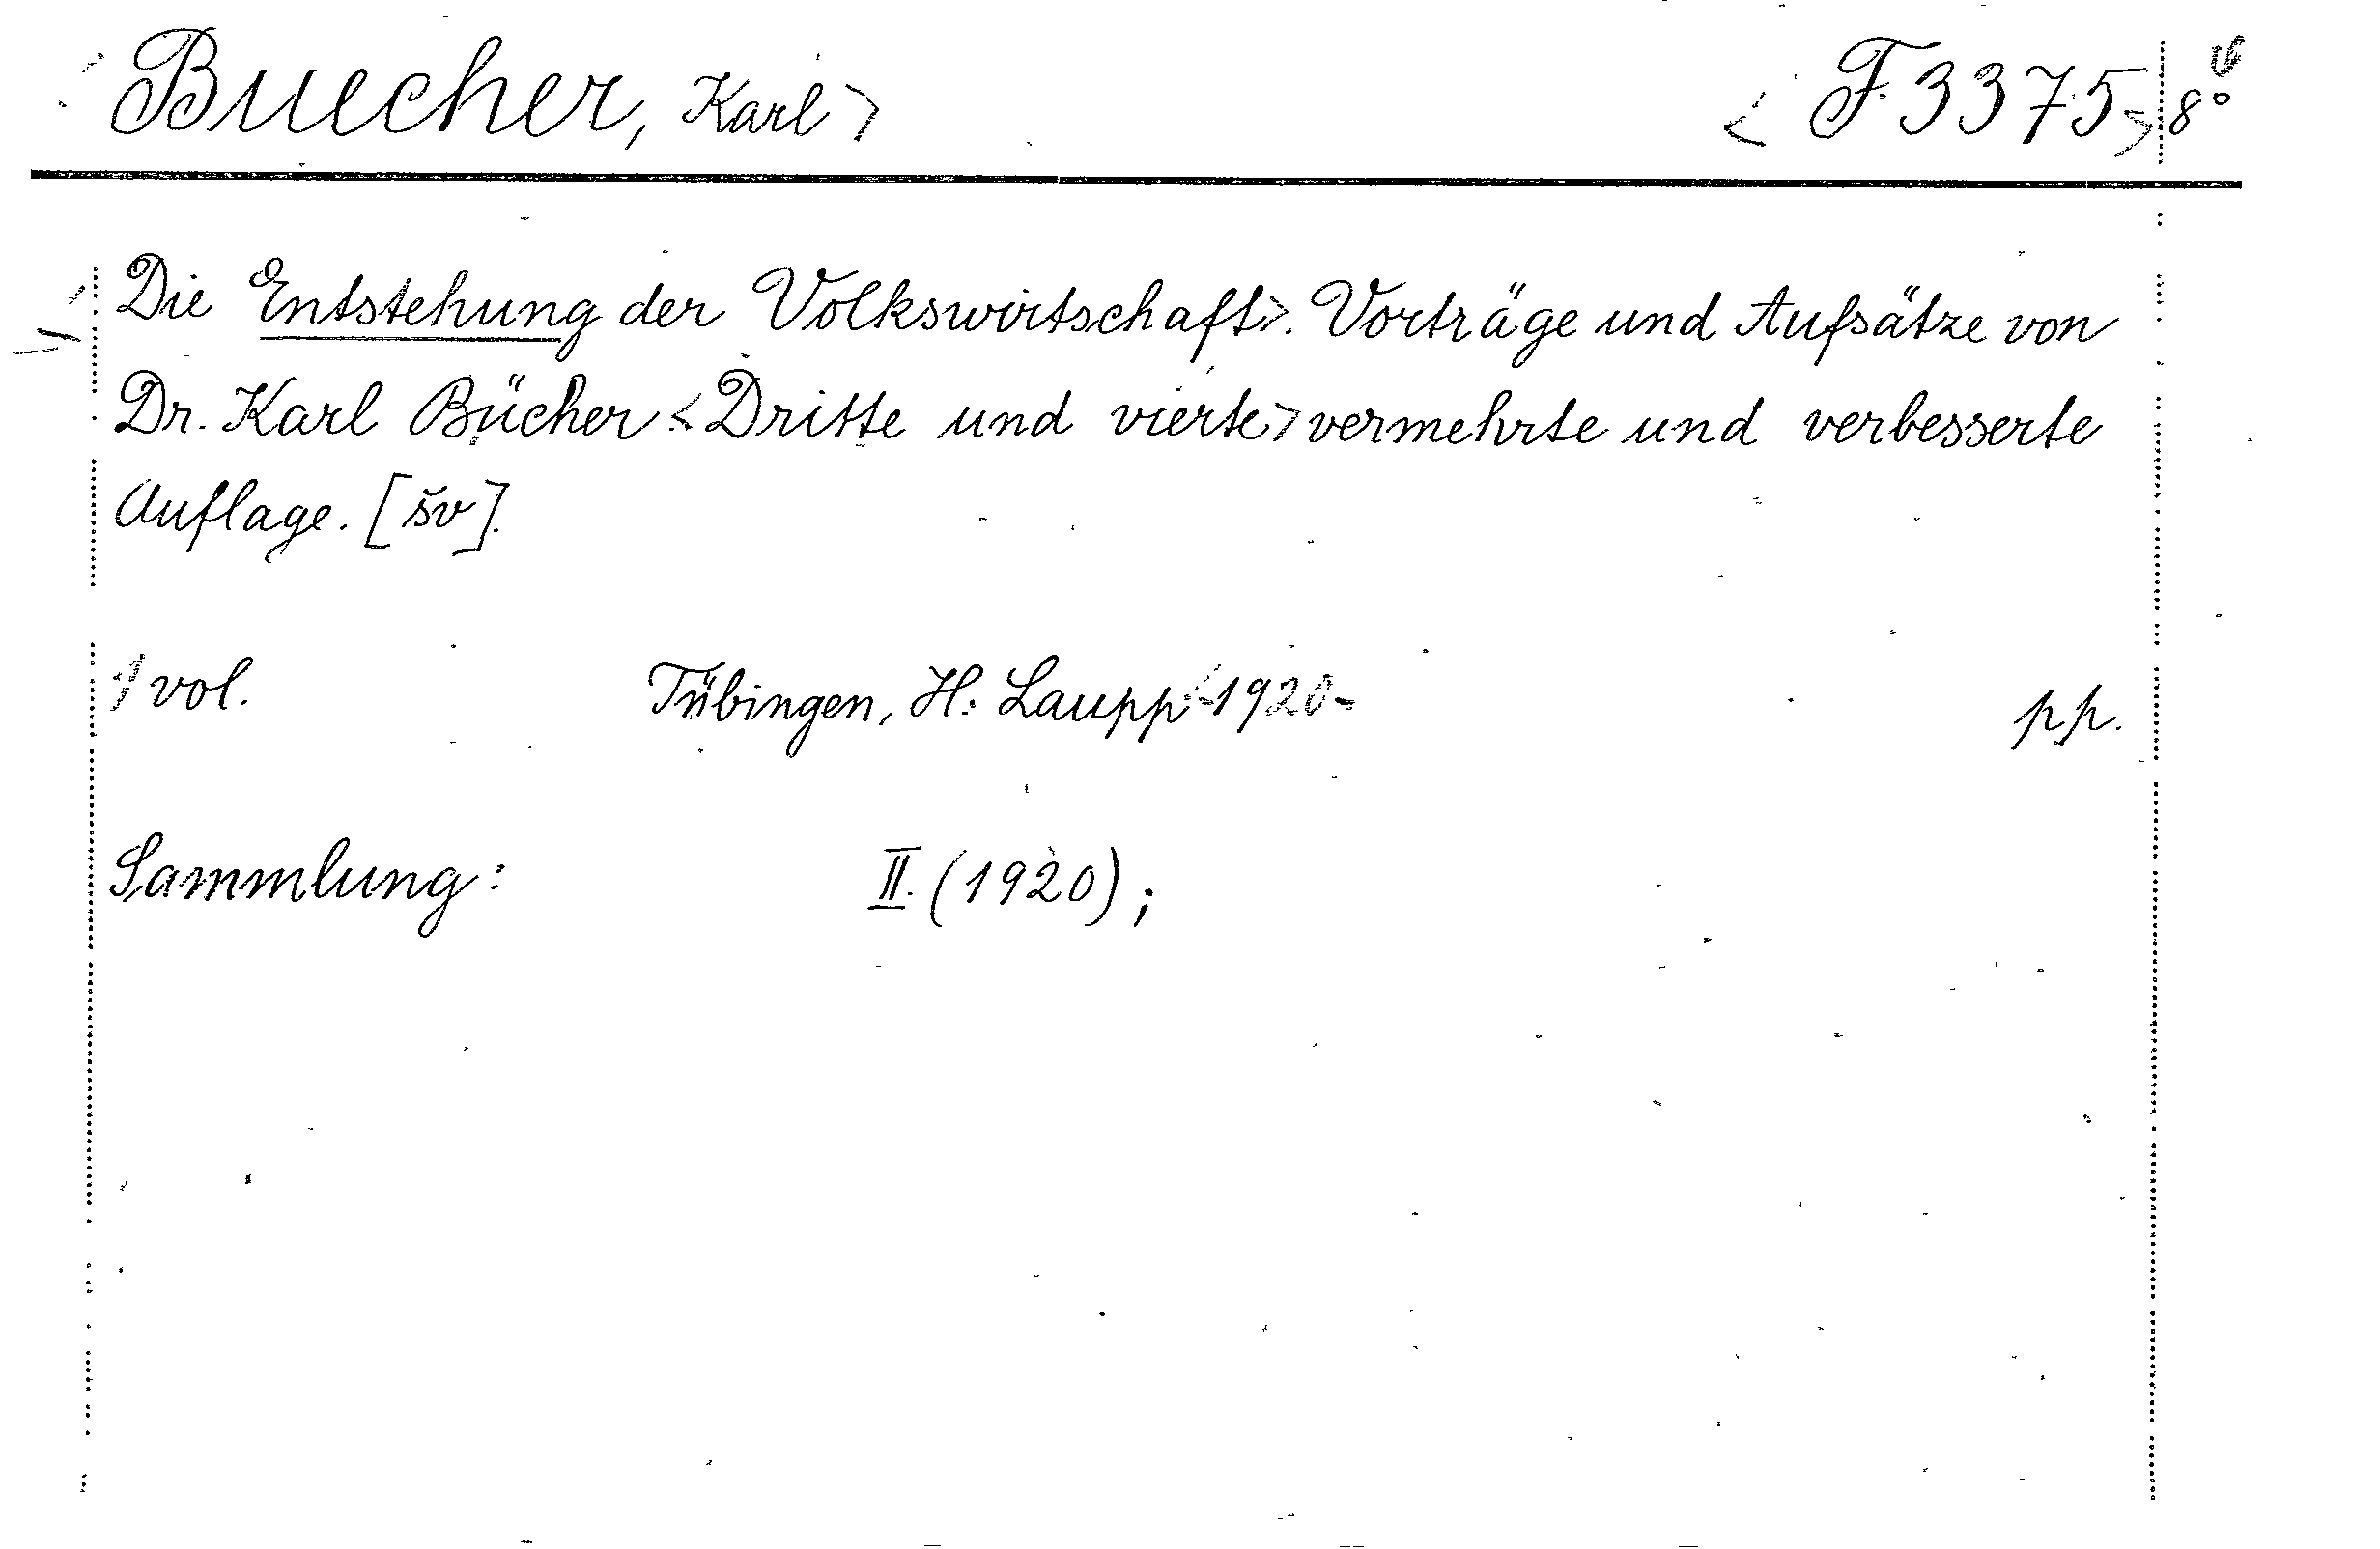 Buecher, Karl> <F. 3375> 8°
Die Entstehung der Volkswirtschaft>. Vorträge und Aufsätze von
Dr. Karl Bücher <Dritte und vierte> vermehrte und verbesserte
Auflage. [šv].
1 vol. Tübingen, H. Laupp -1920- pp.
Sammlung: II. (1920);